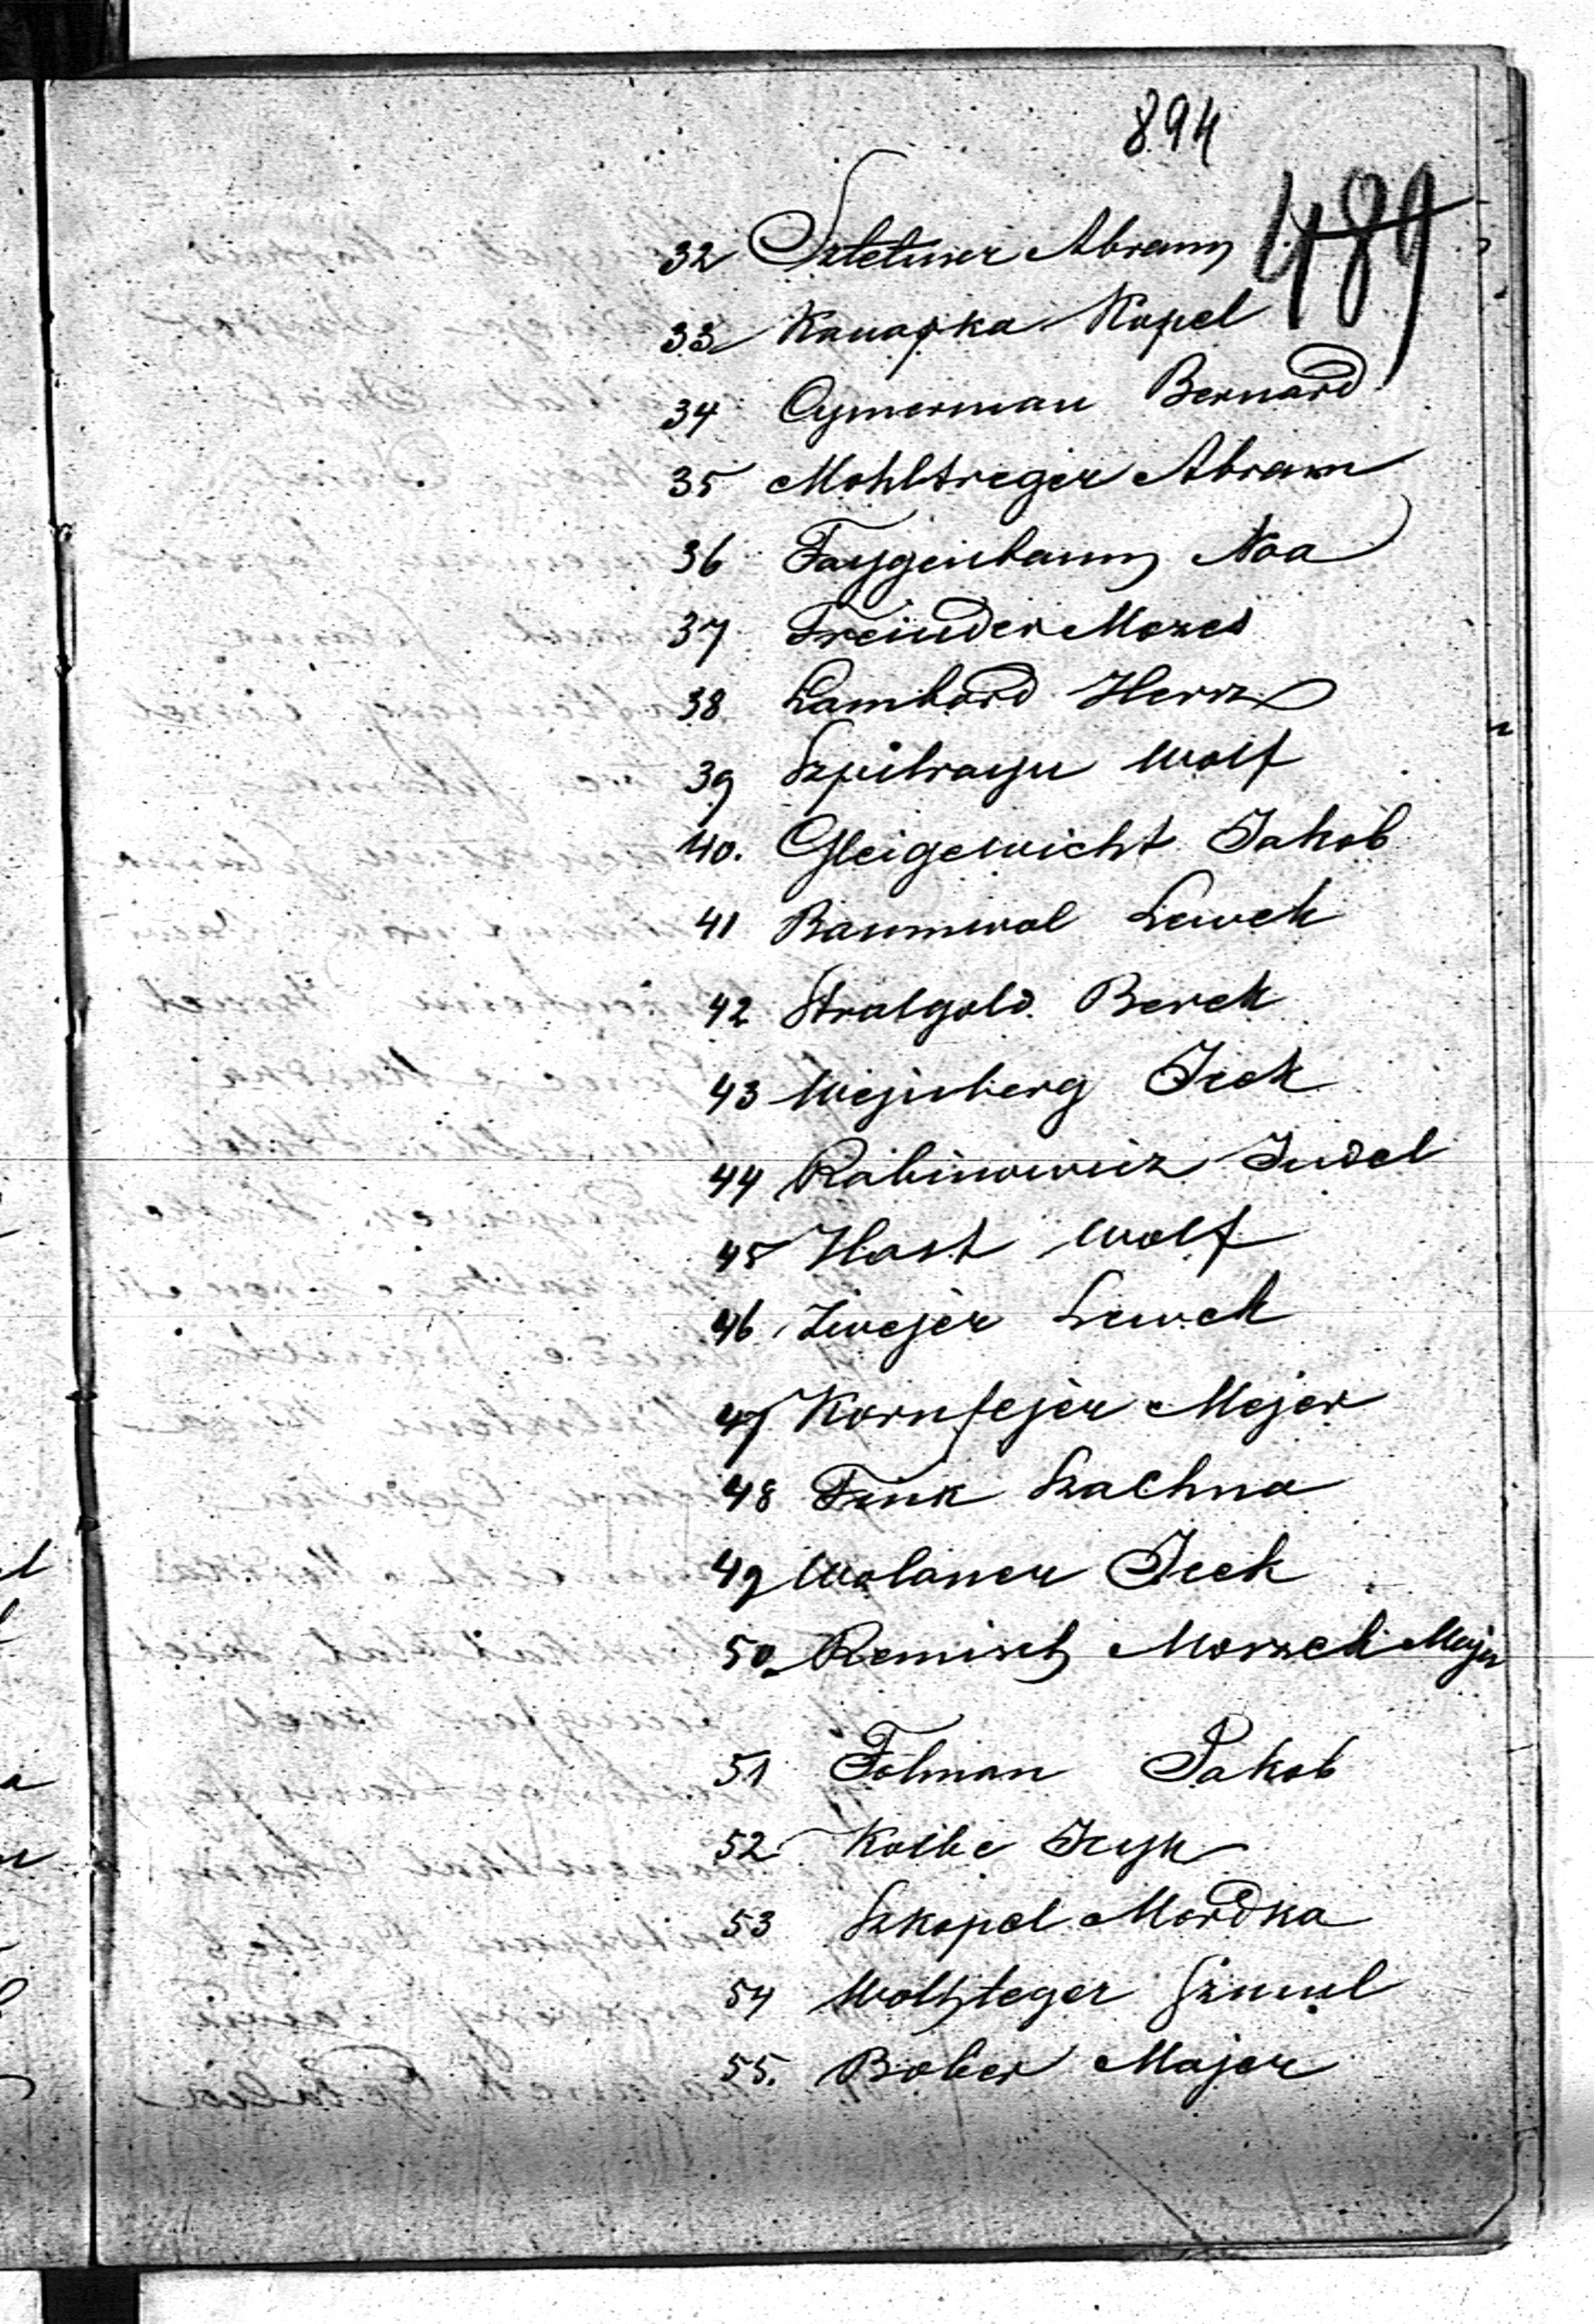 894
489
32 Sztetiner Abram
33 Kanapka Kopel
34 Cymerman Bernard
35 Mohltreger Abram
36 Faygenbaum Noa
37 Freinder Mozes
38 Lambord Hersz
39 Szpilrayn Wolf
40. Gleigewicht Jakob
41 Baumwol Lewek
42 Stralgold Berek
43 Wejnberg Icek
44 Rabinowicz Judel
45 Hast Wolf
46 Zwejer Lewek
47 Kornfejer Mejer
48 Fink Szachna
49 Wolaner Icek
50. Remisch Moszek Majer
51 Folman Jakob
52 Kolbe Icyk
53 Szkopel Mordka
54 Szmul
55. Bober Majer